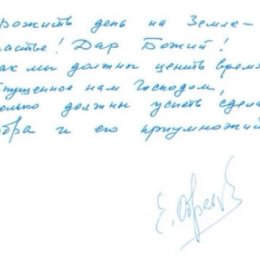 рожить день на Земле -
астье! Дар Божий!
ак мы должны ценить время
тпущенное нам Господом,
олько должны успеть сдела
обра и его приумножи
Е.